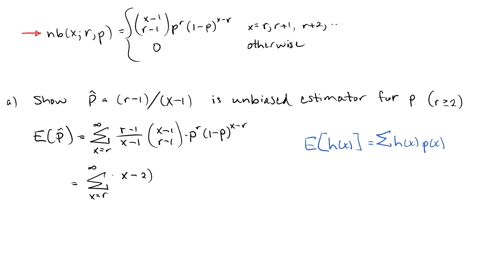 → nb(x; r, p) = { (x-1 choose r-1) p^r (1-p)^(x-r)   x = r, r+1, r+2, ...
0   otherwise
a) Show p̂ = (r-1)/(X-1) is unbiased estimator for p (r ≥ 2)
E(p̂) = ∑_{x=r}^{∞} (r-1)/(x-1) (x-1 choose r-1) · p^r (1-p)^(x-r)   E[h(x)] = ∑ h(x) p(x)
= ∑_{x=r}^{∞} · x-2)